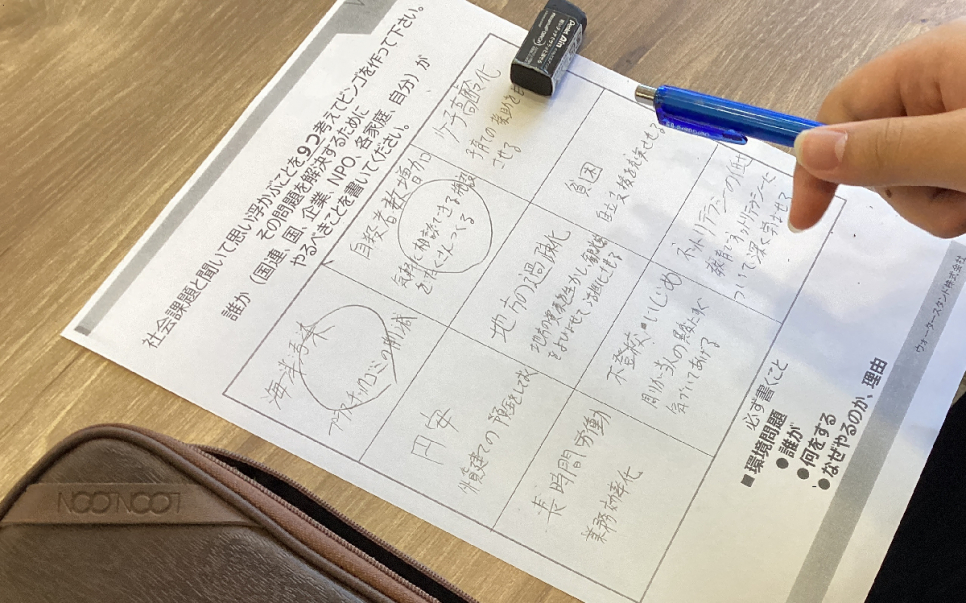 社会課題と聞いて思い浮かぶことを9つ考えてビンゴを作って下さい。
その問題を解決するために
誰か（国連、国、企業、NPO、各家庭、自分）が
やるべきことを書いてください。
海洋汚染
プラスチックゴミの削減
自殺者数増加
気軽に相談できる施設
をたくさんつくる
少子高齢化
子育の援助を
させる
円安
外貨建ての預金をしておく
地方の過疎化
地方の資源を生かし、観光客
をよびよせて活性化させる
貧困
自立支援を充実させる
長時間労働
業務効率化
不登校・いじめ
周りが、当人の異変に
気づいてあげる
ネットリテラシーの低
教育で、ネットリテラシーに
ついて深く学ばせる
必ず書くこと
■環境問題
●誰が
●何をする
●なぜやるのか、理由
ウォータースタンド株式会社
Pentel Ain
NOONOON